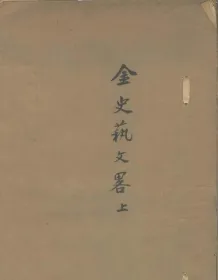 金史藝文畧上